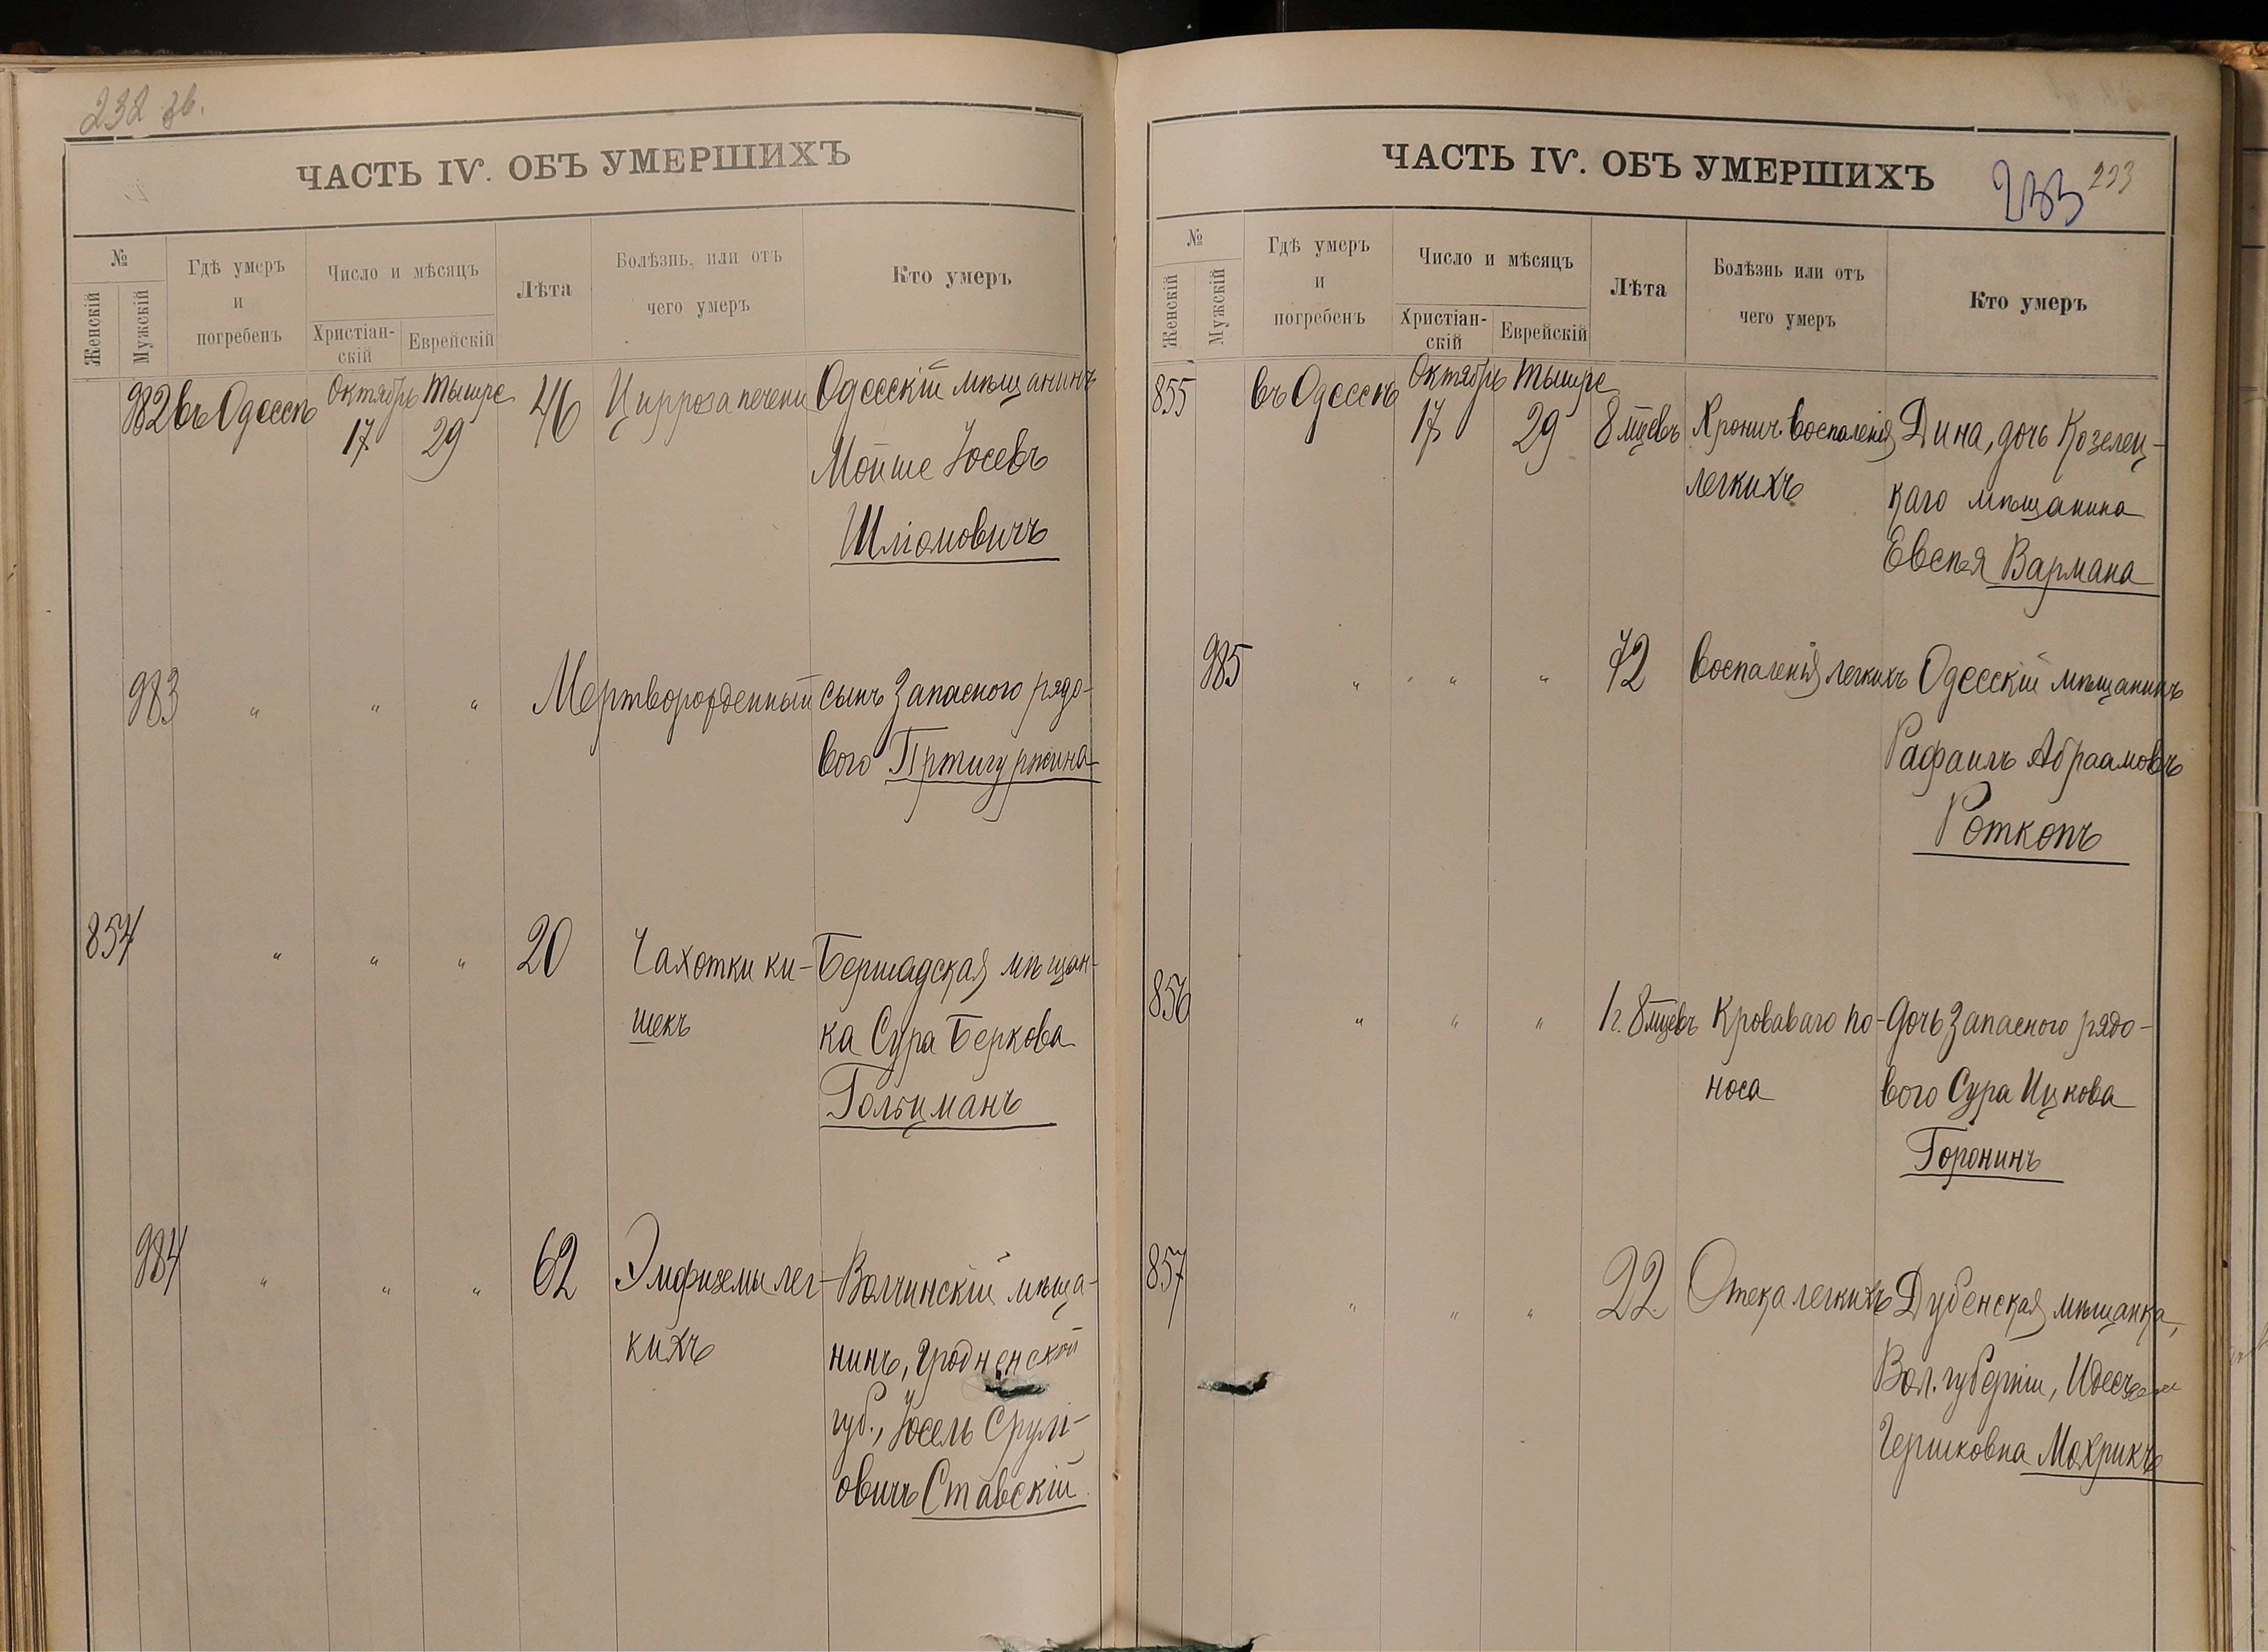 232 зв.
ЧАСТЬ IV. ОБЪ УМЕРШИХЪ
№
Женскій
Мужскій
Гдѣ умеръ
и
погребенъ
Число и мѣсяцъ
Христіан-
скій
Еврейскій
Лѣта
Болѣзнь, или отъ
чего умеръ
Кто умеръ
982 въ Одессѣ Октябрь Тышре 46 Цирроза печени Одесскій мѣщанинъ
17 29
Мойше Іосевъ
Шліомовичъ
983 " " " Мертворожденный сынъ запасного рядо-
вого Пртигуржина
854 " " " 20 Чахотки ки- Бершадская мѣщан-
шекъ ка Сура Беркова
Гольцманъ
984 " " " 62 Эмфиземы лег- Волчинскій мѣща-
кихъ нинъ, Гродненской
губ., Іосель Срулі-
овичъ Ставскій
ЧАСТЬ IV. ОБЪ УМЕРШИХЪ
233 233
№
Женскій
Мужскій
Гдѣ умеръ
и
погребенъ
Число и мѣсяцъ
Христіан-
скій
Еврейскій
Лѣта
Болѣзнь или отъ
чего умеръ
Кто умеръ
855 въ Одессѣ Октябрь Тышре
17 29 8 мцевъ Хронич воспаленія Дина, дочь Козелец-
легкихъ каго мѣщанина
Евсѣя Вармана
985 " " " 72 Воспаленія легкихъ Одесскій мѣщанинъ
Рафаилъ Абраамовъ
Роткопъ
856 " " " 1 г. 8 мцевъ Кроваваго по- Дочь запасного рядо-
носа вого Сура Ицкова
Горонинъ
857 " " " 22 Отека легкихъ Дубенская мѣщанка,
Вол. губерніи,
Гершковна Мохрикъ